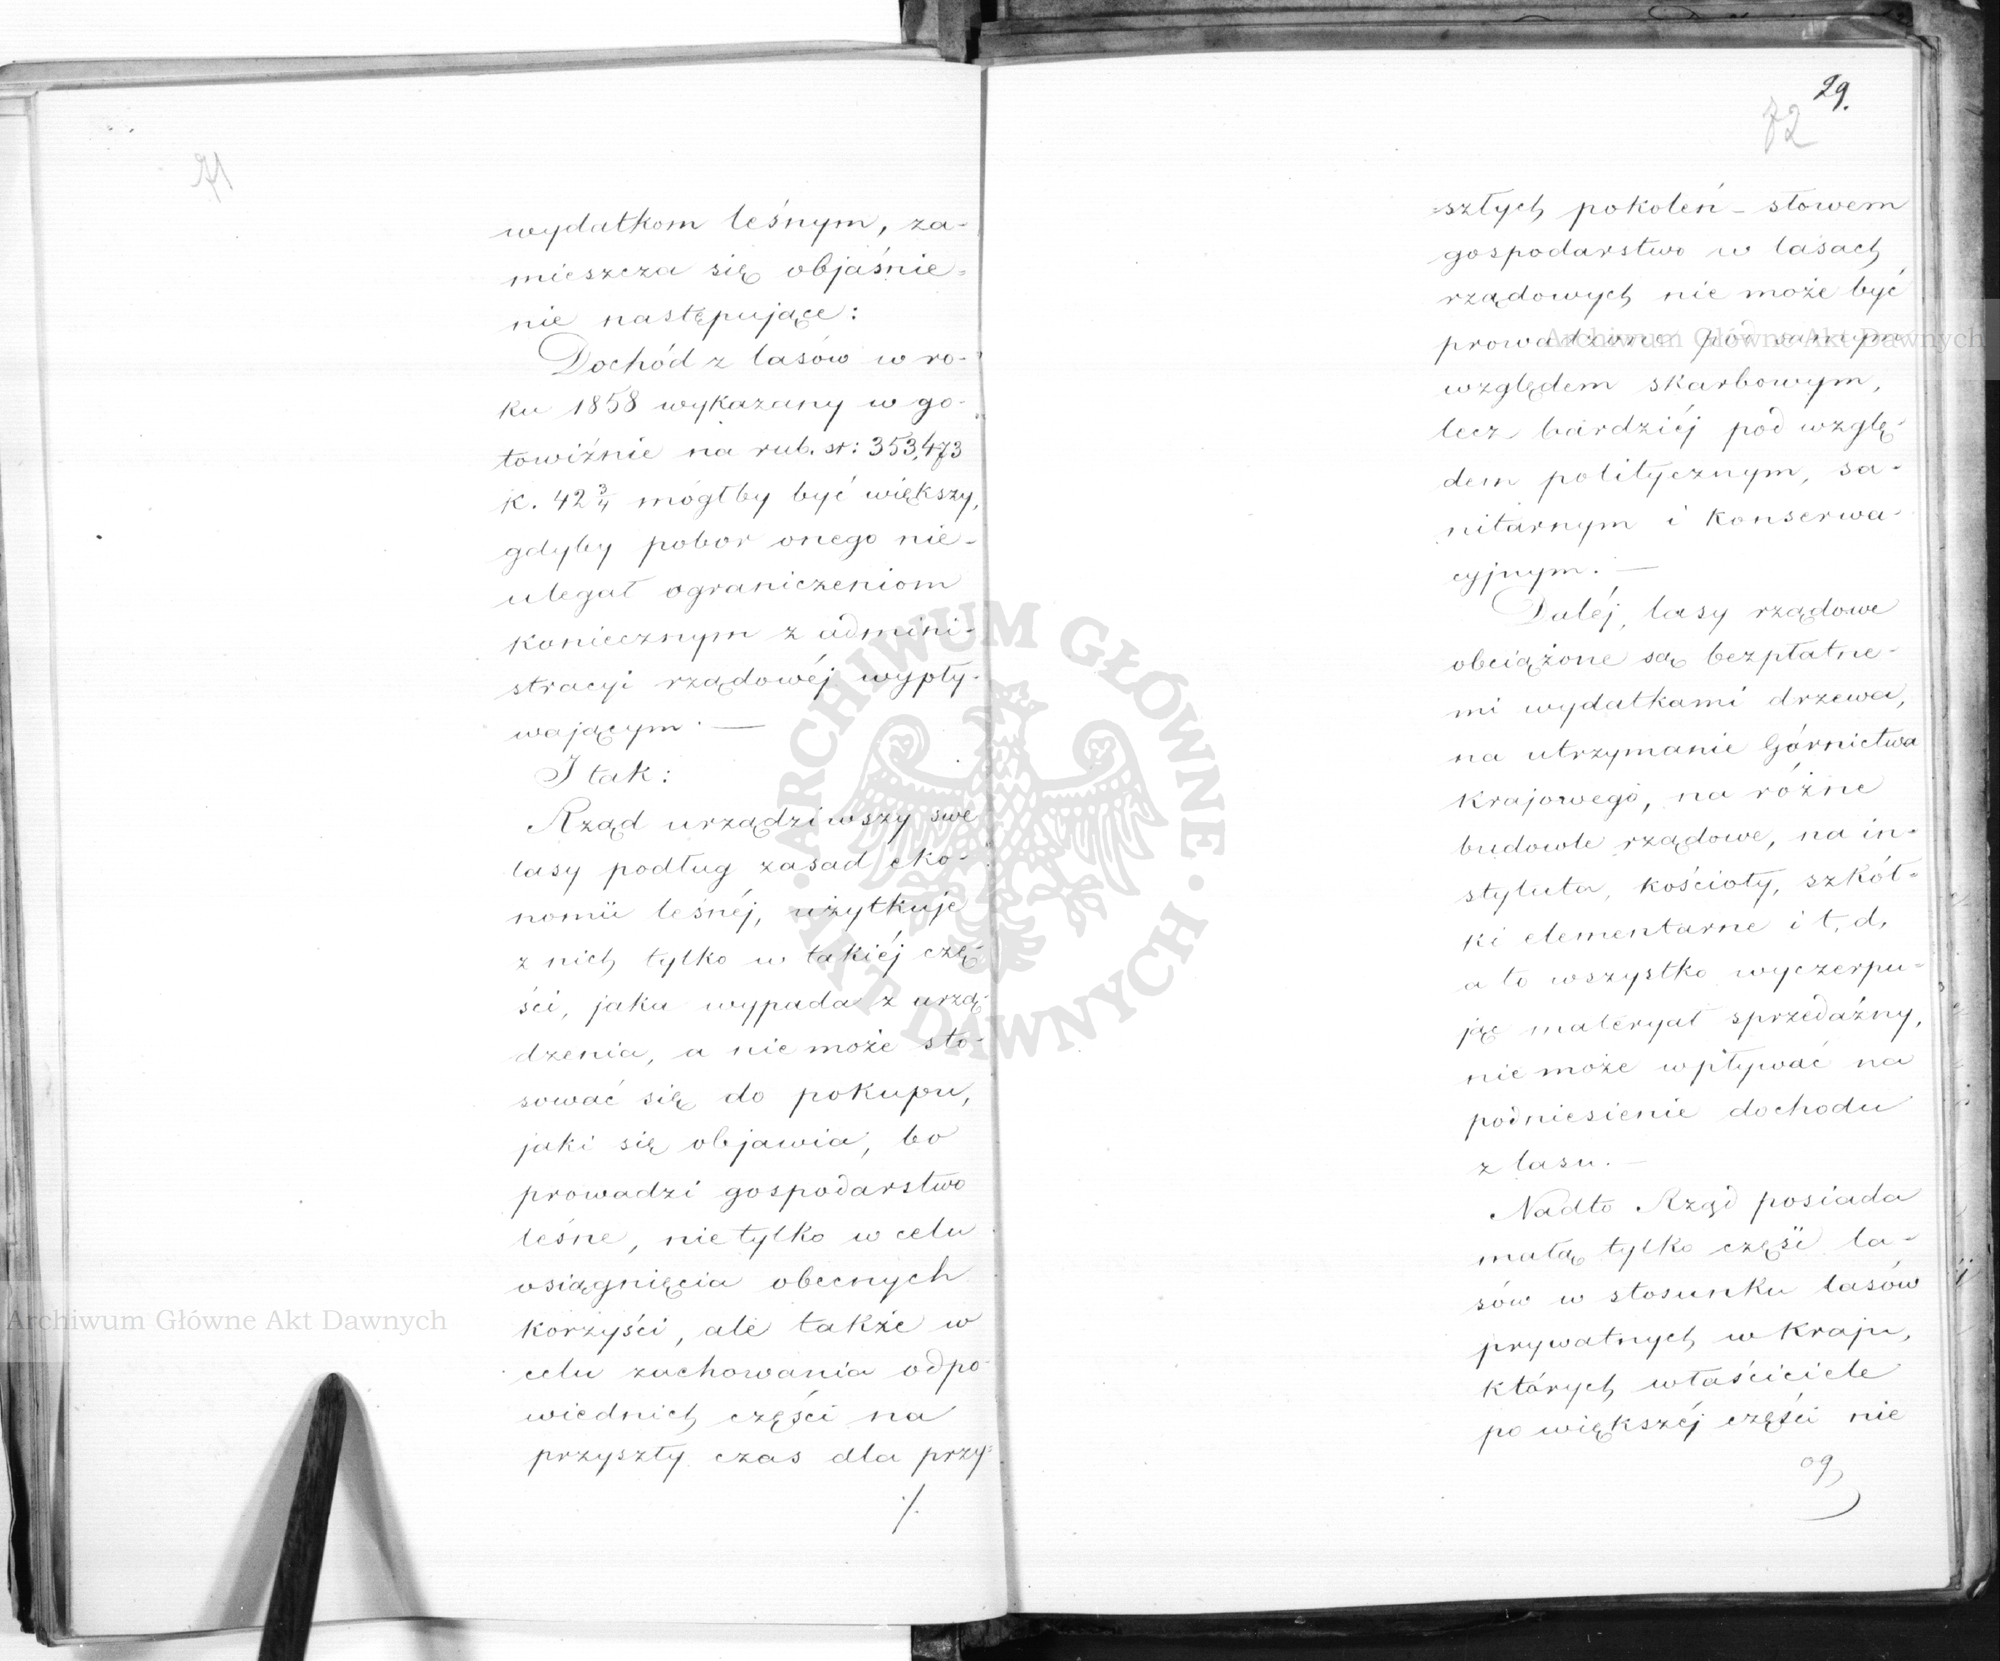 71
wydatkom leśnym, za-
mieszcza się objaśnie=
nie następujące:
Dochód z lasów w ro-
ku 1858 wykazany w go-
towiźnie na rub. sr: 353,473
k. 42 3/4 mógłby być większy,
gdyby pobor onego nie-
ulegał ograniczeniom
koniecznym z admini-
stracyi rządowéj wypły-
wającym. —
I tak:
Rząd urządziwszy swe
lasy podług zasad eko-
nomii leśnéj, użytkuje
z nich tylko w takiéj czę-
ści, jaka wypada z urzą-
dzenia, a nie może sto-
sować się do pokupu,
jaki się objawia, bo
prowadzi gospodarstwo
leśne, nie tylko w celu
osiągnięcia obecnych
korzyści, ale także w
celu zachowania odpo-
wiednich części na
przyszły czas dla przy=
./.
29.
72
=szłych pokoleń – słowem
gospodarstwo w lasach
rządowych nie może być
prowadzone pod samym
względem skarbowym,
lecz bardziéj pod wzglę-
dem politycznym, sa-
nitarnym i konserwa-
cyjnym. —
Daléj, lasy rządowe
obciążone są bezpłatne-
mi wydatkami drzewa,
na utrzymanie Górnictwa
krajowego, na różne
budowle rządowe, na in-
styluta, kościoły, szkół-
ki elementarne i t. d.
a to wszystko wyczerpu-
jąc materyał sprzedażny,
nie może wpływać na
podniesienie dochodu
z lasu. —
Nadto Rząd posiada
małą tylko część la-
sów w stosunku lasów
prywatnych w kraju,
których właściciele
po większéj części nie
og
Archiwum Główne Akt Dawnych
Archiwum Główne Akt Dawnych
· ARCHIWUM GŁÓWNE · AKT DAWNYCH